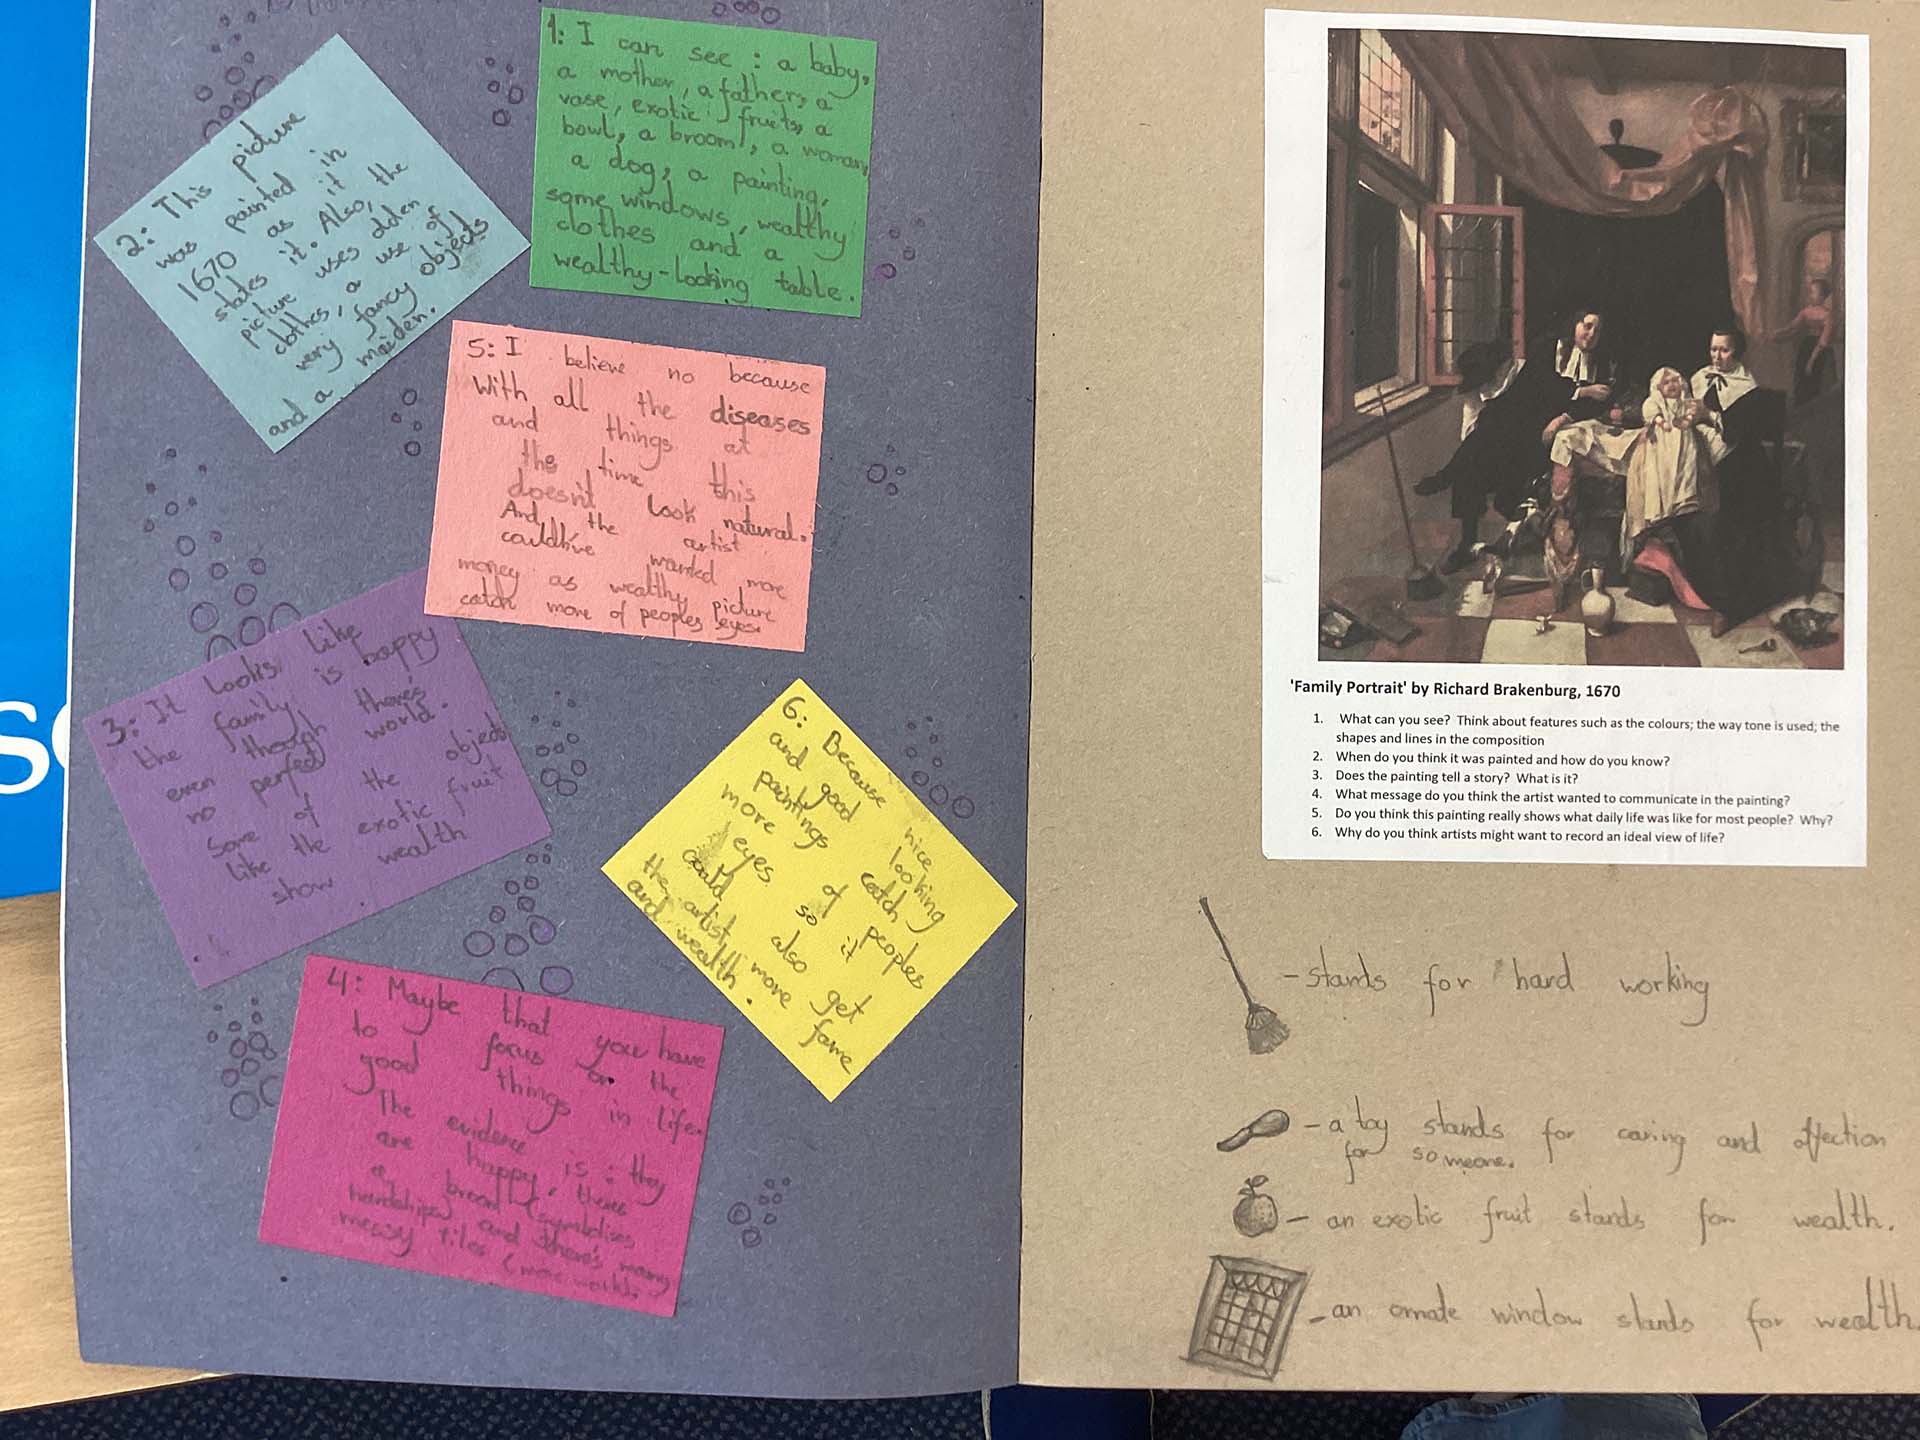 1: I can see : a baby,
a mother, a father, a
vase, exotic fruits, a
bowl, a broom, a woman,
a dog, a painting,
some windows, wealthy
clothes and a
wealthy-looking table.
2: This picture
was painted in
1670 as it
states it. Also, the
picture uses olden
clothes, a use of
very fancy objects
and a maiden.
5: I believe no because
With all the diseases
and things at
the time this
doesn't look natural.
And, the artist
could've wanted more
money as wealthy picture
catch more of peoples eyes.
3: It looks like
the family is happy
even though there's
no perfect world.
Some of the objects
like the exotic fruit
show wealth
6: Because nice
and good looking
paintings catch
more eyes of peoples
so it
could also get
the artist more fame
and wealth.
4: Maybe that you have
to focus on the
good things in life.
The evidence is: they
are happy, theres
a broom (symbolises
hardship) and there's many
messy tiles (more work).
'Family Portrait' by Richard Brakenburg, 1670
1. What can you see? Think about features such as the colours; the way tone is used; the
shapes and lines in the composition
2. When do you think it was painted and how do you know?
3. Does the painting tell a story? What is it?
4. What message do you think the artist wanted to communicate in the painting?
5. Do you think this painting really shows what daily life was like for most people? Why?
6. Why do you think artists might want to record an ideal view of life?
- stands for hard working
- a toy stands for caring and affection
for someone.
- an exotic fruit stands for wealth.
- an ornate window stands for wealth.